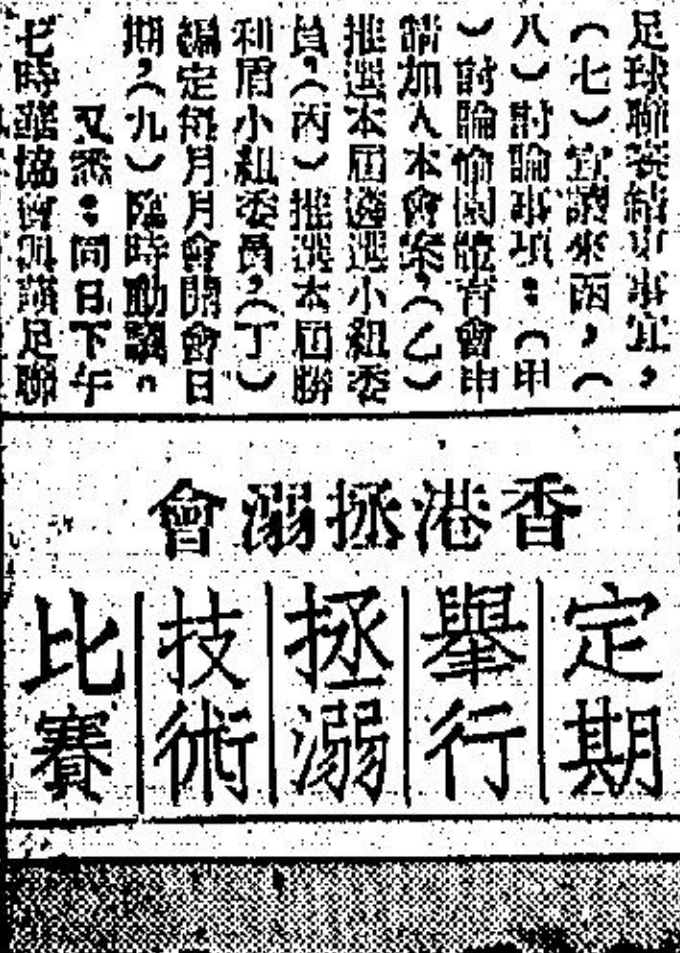 足球聯賽結束事宜，
（七）宣讀來函，（
八）討論事項：（甲
）討論愉園體育會申
請加入本會案，（乙）
推選本屆遴選小組委
員，（丙）推選本屆勝
利盾小組委員，（丁）
編定每月月會開會日
期，（九）臨時動議。
又悉：同日下午
七時華協會與華足聯
香港拯溺會
定期
舉行
拯溺
技術
比賽